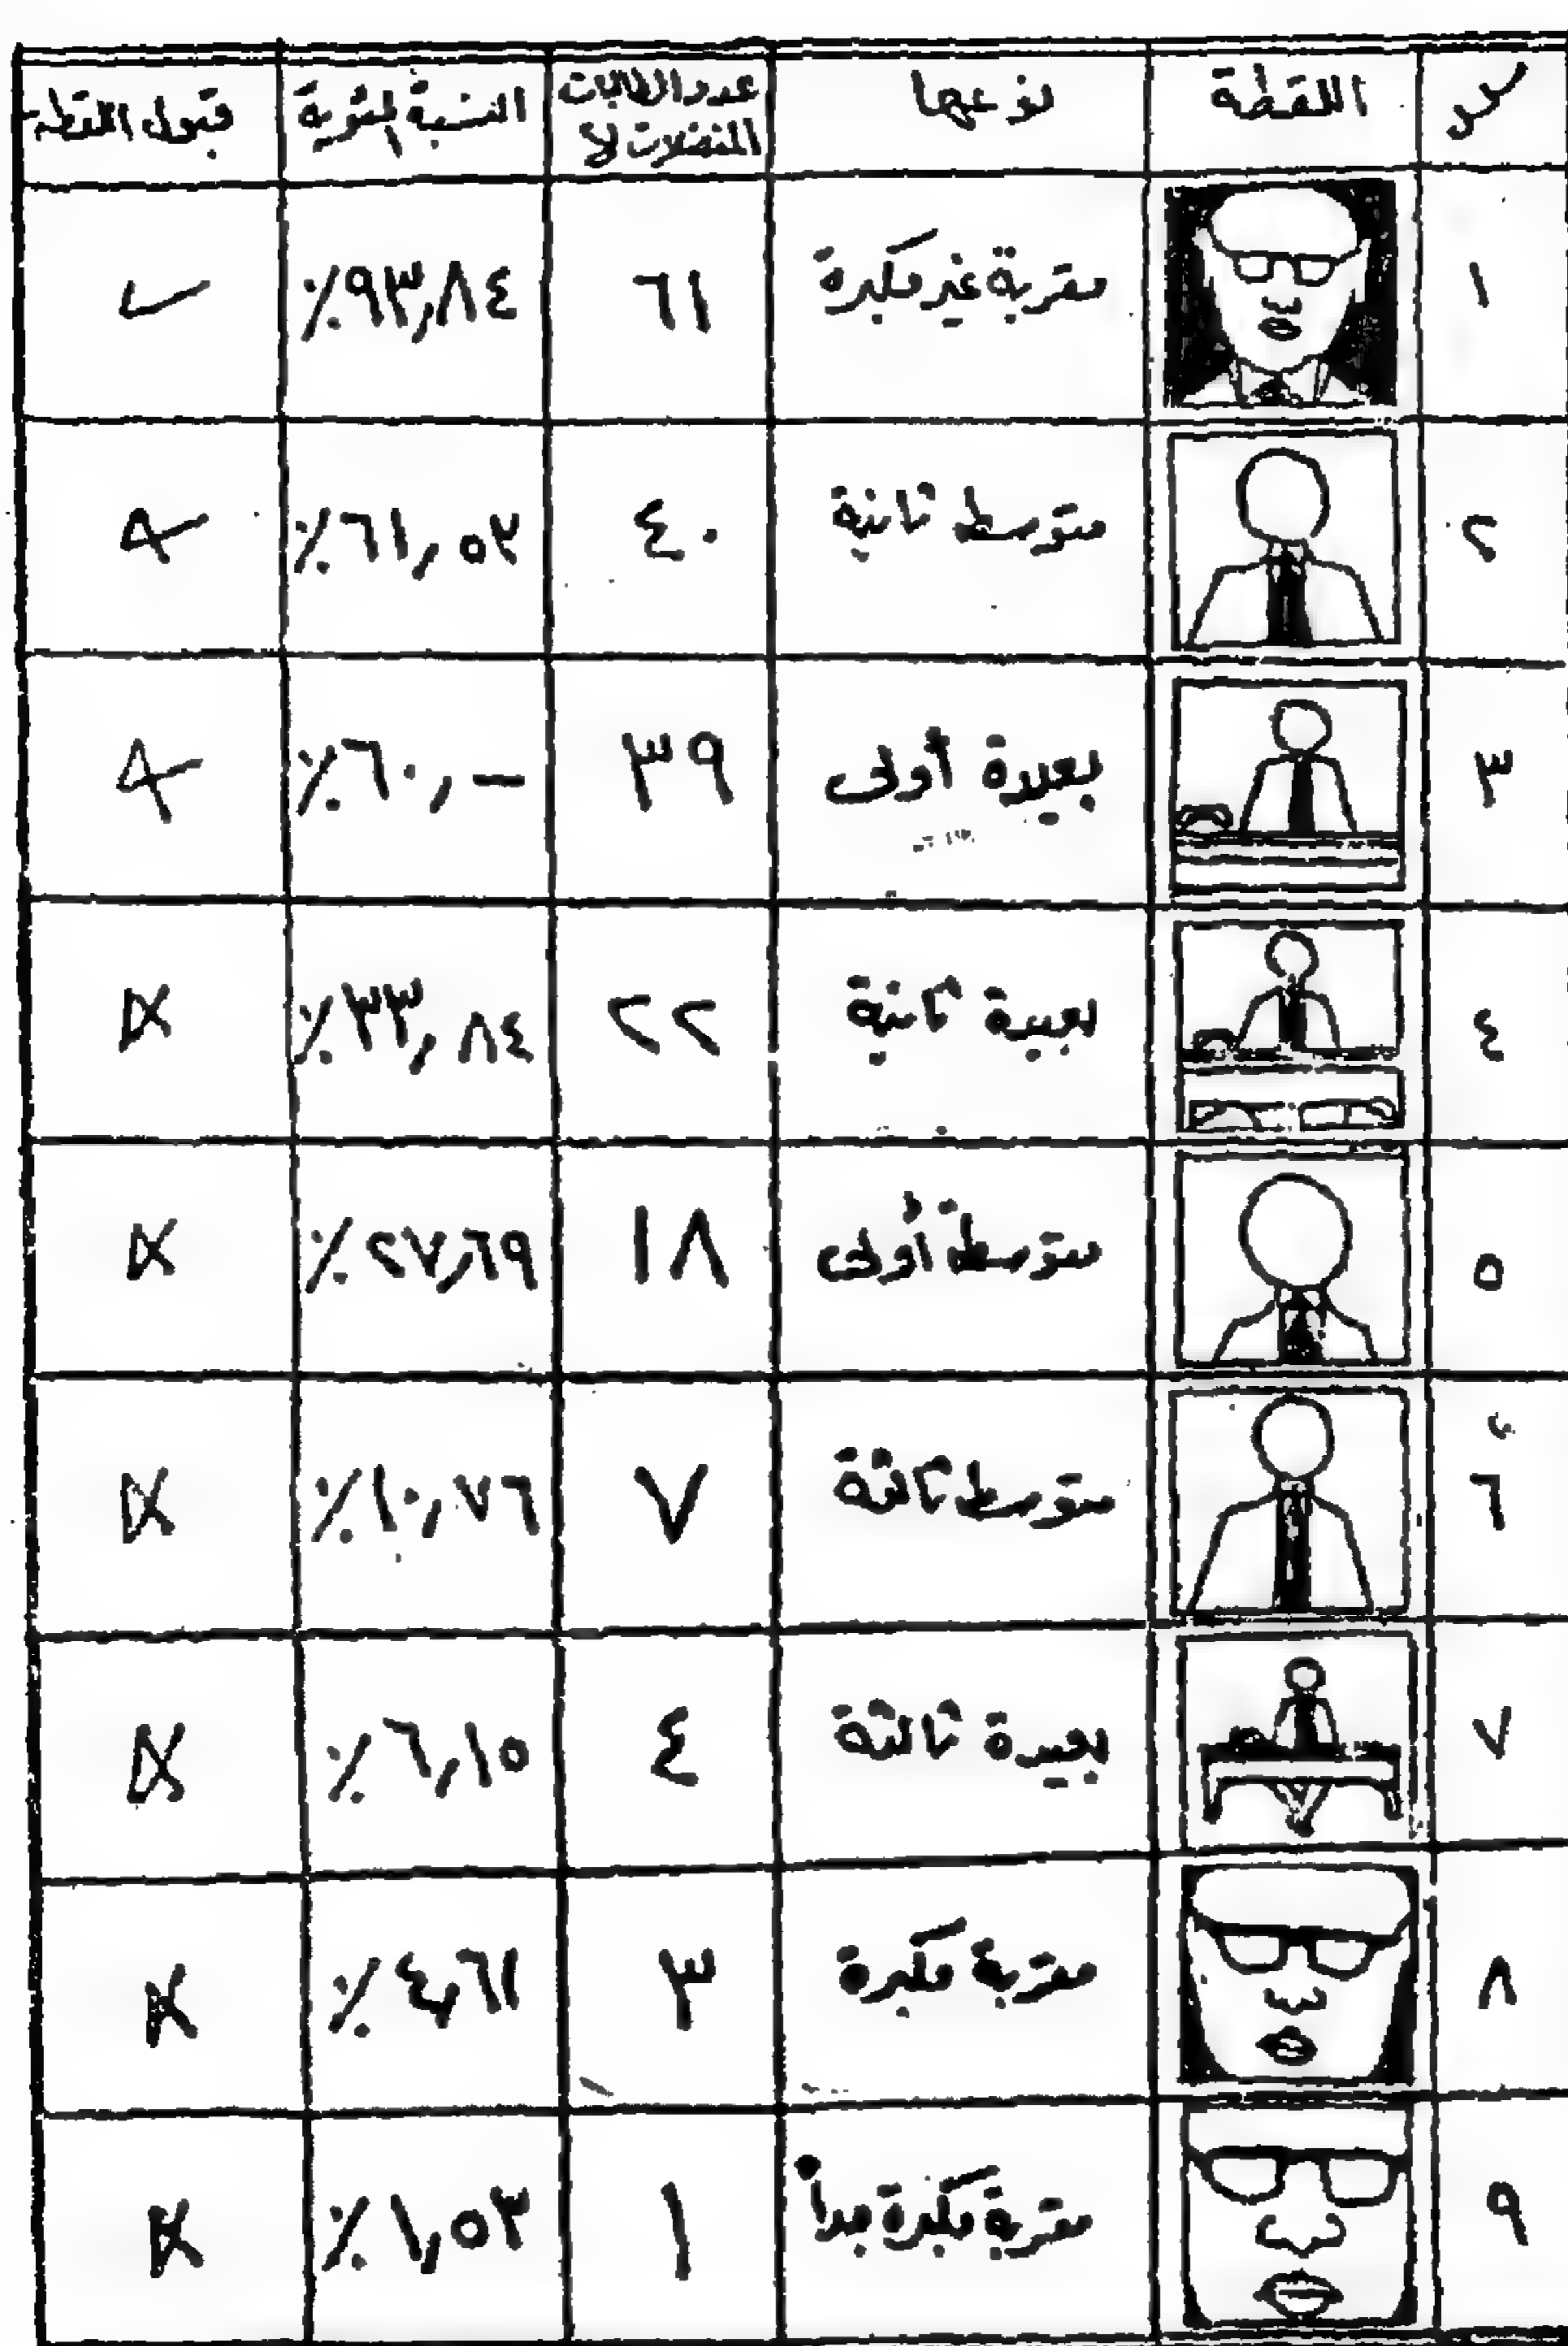 اللقطة نوعها عدد الطالبات النسبة المئوية قبول اللقطة
المفضلات لا
١ مقربة غير مكبرة ٦١ ٩٣,٨٤٪
٢ متوسط ثانية ٤٠ ٦١,٥٣٪
٣ بعيدة أولى ٣٩ ٦٠,—٪
٤ بعيدة ثانية ٢٢ ٣٣,٨٤٪
٥ متوسطة أولى ١٨ ٢٧,٦٩٪
٦ متوسط ثالثة ٧ ١٠,٧٦٪
٧ بعيدة ثالثة ٤ ٦,١٥٪
٨ مقربة مكبرة ٣ ٤,٦١٪
٩ مقربة مكبرة جداً ١ ١,٥٣٪